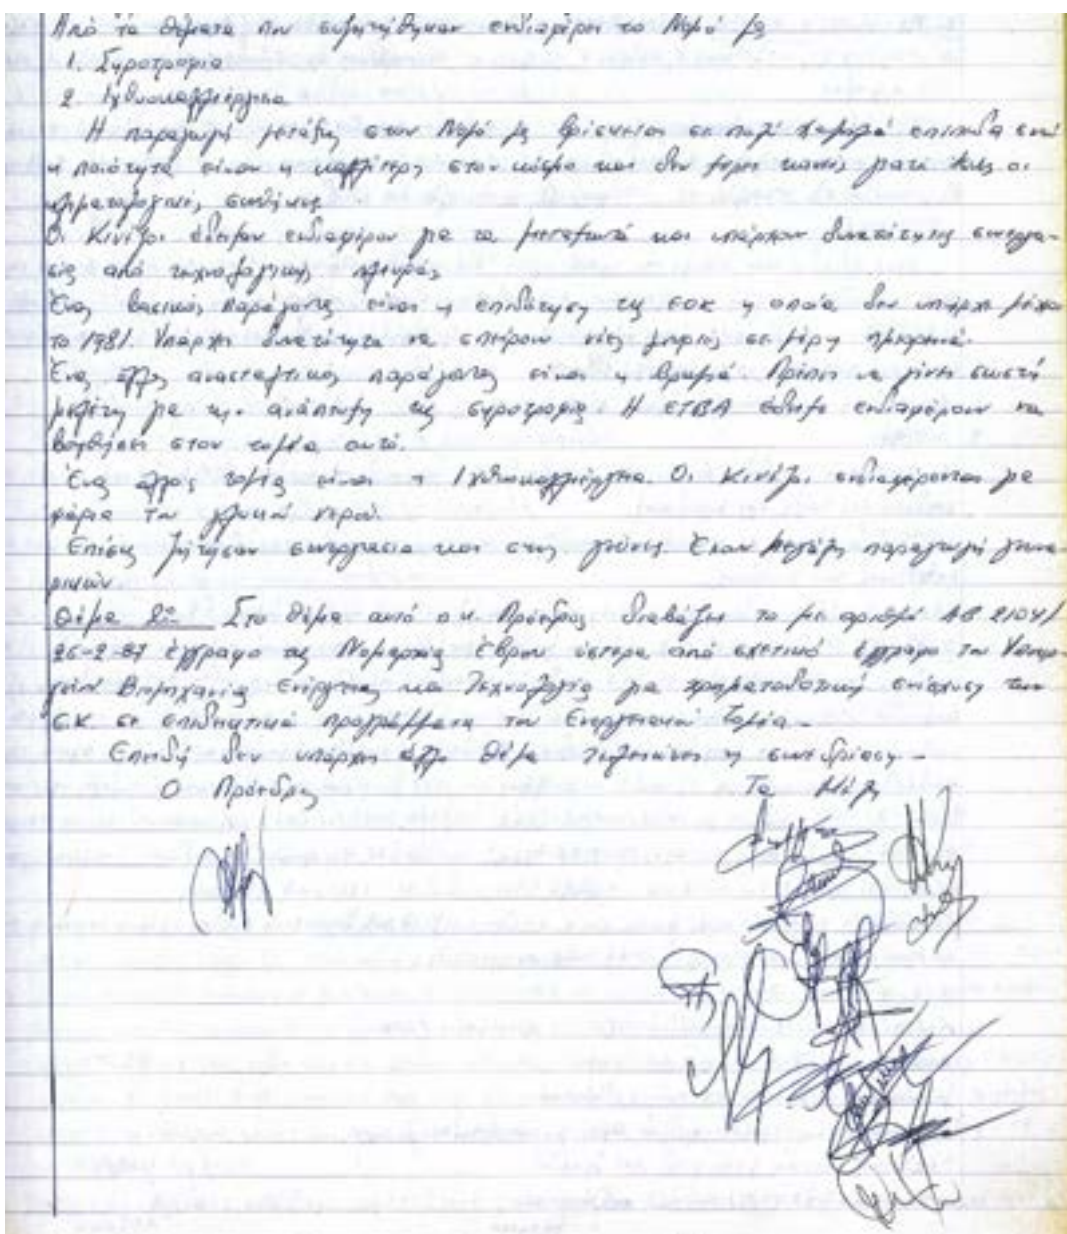 Από τα θέματα που συζητήθηκαν ενδιαφέρει το Νομό μας
1. Σηροτροφία
2. Ιχθυοκαλλιέργεια
Η παραγωγή μετάξης στον Νομό μας βρίσκεται σε πολύ χαμηλά επίπεδα ενώ
η ποιότητα είναι η καλλίτερη στον κόσμο και δεν κανείς γιατί οι
κλιματολογικές συνθήκες
Οι Κινέζοι έδειξαν ενδιαφέρον για τα μεταξωτά και υπάρχουν δυνατότητες συνεργα-
σίας από τεχνολογικής πλευράς
Ένας βασικός παράγοντας είναι η επιδότηση της ΕΟΚ η οποία δεν υπήρχε μέχρι
το 1981. Υπάρχει δυνατότητα να σε μέρη
Ένας άλλος ανασταλτικός παράγοντας είναι η Πρέπει να γίνει σωστή
μελέτη για την ανάπτυξη της σηροτροφίας Η ΕΤΒΑ έδειξε ενδιαφέρον να
βοηθήσει στον τομέα αυτό.
Ένας άλλος τομέας είναι η Ιχθυοκαλλιέργεια. Οι Κινέζοι ενδιαφέρονται για
ψάρια του γλυκού νερού.
Επίσης ζήτησαν συνεργασία και στις γούνες. Έχουν μεγάλη παραγωγή γουνα-
ρικών
Θέμα 2ο Στο θέμα αυτό ο κ. Πρόεδρος διαβάζει το με αριθμ. 2104/
26-2-87 έγγραφο της Νομαρχίας Έβρου ύστερα από σχετικό έγγραφο του Υπουρ-
γείου Βιομηχανίας Ενέργειας και Τεχνολογίας για χρηματοδοτική ενίσχυση των
ΕΚ σε επιδεικτικά προγράμματα του Ενεργειακού Τομέα.-
Επειδή δεν υπάρχει άλλο θέμα συνεδρίαση.-
Ο Πρόεδρος Τα Μέλη